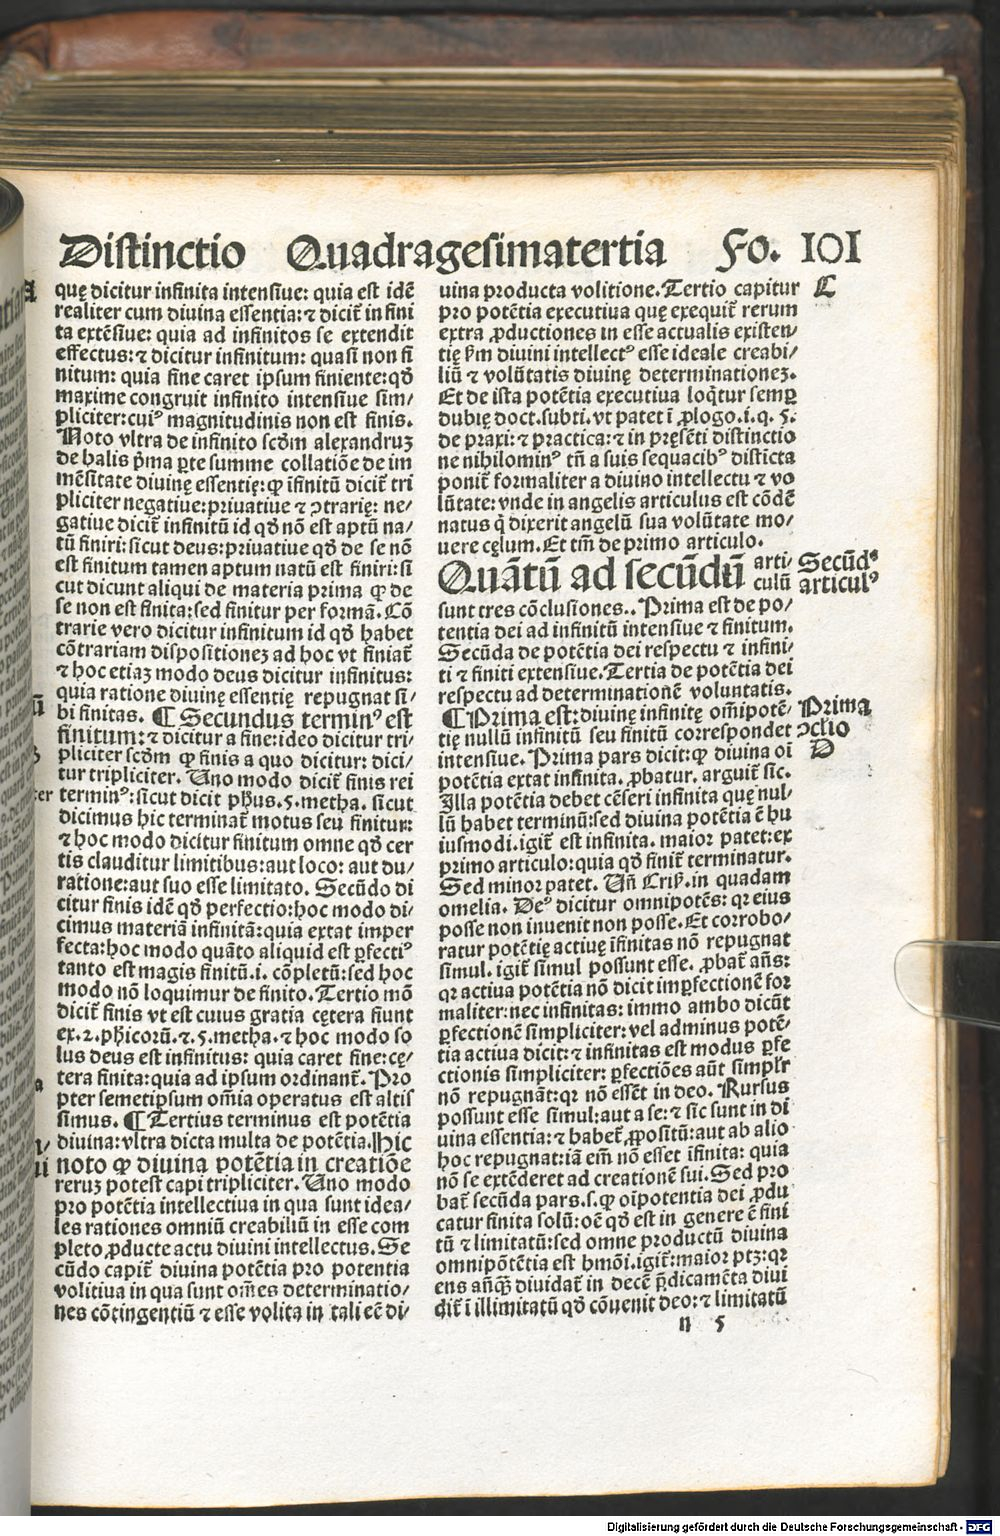 Distinctio Quadragesimatertia Fo. 101
A
quę dicitur infinita intensiue: quia est idē
realiter cum diuina essentia: ⁊ dicit̄ infini
ta extēsiue: quia ad infinitos se extendit
effectus: ⁊ dicitur infinitum: quasi non fi
nitum: quia fine caret ipsum finiente: qd̄
maxime congruit infinito intensiue sim/
pliciter: cuiꝰ magnitudinis non est finis.
Noto vltra de infinito scd̄m alexandruꝫ
de halis p̄ma ꝑte summe collatiōe de im
mēsitate diuinę essentię: ꝙ īfinitū dicit̄ tri
pliciter negatiue: priuatiue ⁊ ↄtrarię: ne/
gatiue dicit̄ infinitū id qd̄ nō est aptū na/
tū finiri: sicut deus: priuatiue qd̄ de se nō
est finitum tamen aptum natū est finiri: si
cut dicunt aliqui de materia prima ꝙ de
se non est finita: sed finitur per formā. Cō
trarie vero dicitur infinitum id qd̄ habet
cōtrariam dispositioneꝫ ad hoc vt finiat̄
⁊ hoc etiaꝫ modo deus dicitur infinitus:
quia ratione diuinę essentię repugnat si/
bi finitas. ¶ Secundus terminꝰ est
finitum: ⁊ dicitur a fine: ideo dicitur tri/
pliciter scd̄m ꝙ finis a quo dicitur: dici/
tur tripliciter. Uno modo dicit̄ finis rei
terminꝰ: sicut dicit ph̄us. 5. metha. sicut
dicimus hic terminat̄ motus seu finitur:
⁊ hoc modo dicitur finitum omne qd̄ cer
tis clauditur limitibus: aut loco: aut du/
ratione: aut suo esse limitato. Secūdo di
citur finis idē qd̄ perfectio: hoc modo di/
cimus materiā infinitā: quia extat imper
fecta: hoc modo quāto aliquid est ꝑfectiꝰ
tanto est magis finitū .i. cōpletū: sed hoc
modo nō loquimur de finito. Tertio mō
dicit̄ finis vt est cuius gratia cętera fiunt
ex. 2. phicorū. ⁊. 5. metha. ⁊ hoc modo so
lus deus est infinitus: quia caret fine: cę/
tera finita: quia ad ipsum ordinant̄. Pro
pter semetipsum om̄ia operatus est altis
simus. ¶ Tertius terminus est potētia
diuina: vltra dicta multa de potētia. Hic
noto ꝙ diuina potētia in creatiōe
reruꝫ potest capi tripliciter. Uno modo
pro potētia intellectiua in qua sunt idea/
les rationes omniū creabiliū in esse com
pleto ꝓducte actu diuini intellectus. Se
cūdo capit̄ diuina potētia pro potentia
volitiua in qua sunt om̄es determinatio/
nes cōtingentiū ⁊ esse volita in tali eē di/
uina producta volitione. Tertio capitur
C
pro potētia executiua quę exequit̄ rerum
extra ꝓductiones in esse actualis existen/
tię ẜm diuini intellectꝰ esse ideale creabi/
liū ⁊ volūtatis diuinę determinationeꝫ.
Et de ista potētia executiua loq̄tur semꝑ
dubię doct. subti. vt patet ī ꝓlogo. i. q. 5.
de praxi: ⁊ practica: ⁊ in pręsēti distinctio
ne nihilominꝰ tn̄ a suis sequacibꝰ distīcta
ponit̄ formaliter a diuino intellectu ⁊ vo
lūtate: vnde in angelis articulus est cōdē
natus q̄ dixerit angelū sua volūtate mo/
uere cęlum. Et tm̄ de primo articulo.
Quātū ad secūdū arti/
culū
Secūdꝰ
articulꝰ
sunt tres cōclusiones.. Prima est de po/
tentia dei ad infinitū intensiue ⁊ finitum.
Secūda de potētia dei respectu ⁊ infini/
ti ⁊ finiti extensiue. Tertia de potētia dei
respectu ad determinationē voluntatis.
¶ Prima est: diuinę infinitę om̄ipotē/
Prima
ↄclio
D
tię nullū infinitū seu finitū correspondet
intensiue. Prima pars dicit: ꝙ diuina oī
potētia extat infinita. ꝓbatur. arguit̄ sic.
Illa potētia debet cēseri infinita quę nul/
lū habet terminū: sed diuina potētia ē hu
iusmodi. igit̄ est infinita. maior patet: ex
primo articulo: quia qd̄ finit̄ terminatur.
Sed minor patet. Un̄ Criẜ. in quadam
omelia. Deꝰ dicitur omnipotēs: qꝛ eius
posse non inuenit non posse. Et corrobo/
ratur potētię actiuę īfinitas nō repugnat
simul. igit̄ simul possunt esse. ꝓbat̄ an̄s:
qꝛ actiua potētia nō dicit imꝑfectionē for
maliter: nec infinitas: immo ambo dicūt
ꝑfectionē simpliciter: vel adminus potē/
tia actiua dicit: ⁊ infinitas est modus ꝑfe
ctionis simpliciter: ꝑfectiōes aūt simplr̄
nō repugnāt: qꝛ nō essēt in deo. Rursus
possunt esse simul: aut a se: ⁊ sic sunt in di
uina essentia: ⁊ habet̄ ꝓpositū: aut ab alio
hoc repugnat: iā em̄ nō esset īfinita: quia
nō se extēderet ad creationē sui. Sed pro
bat̄ secūda pars. s. ꝙ oīpotentia dei ꝓdu
catur finita solū: oē qd̄ est in genere ē fini
tū ⁊ limitatū: sed omne productū diuina
omnipōtētia est hmōi. igit̄: maior ptꝫ: qꝛ
ens an̄q̄ꝫ diuidat̄ in decē p̄dicamēta diui
dit̄ ī illimitatū qd̄ cōuenit deo: ⁊ limitatū
n 5
Digitalisierung gefördert durch die Deutsche Forschungsgemeinschaft - DFG